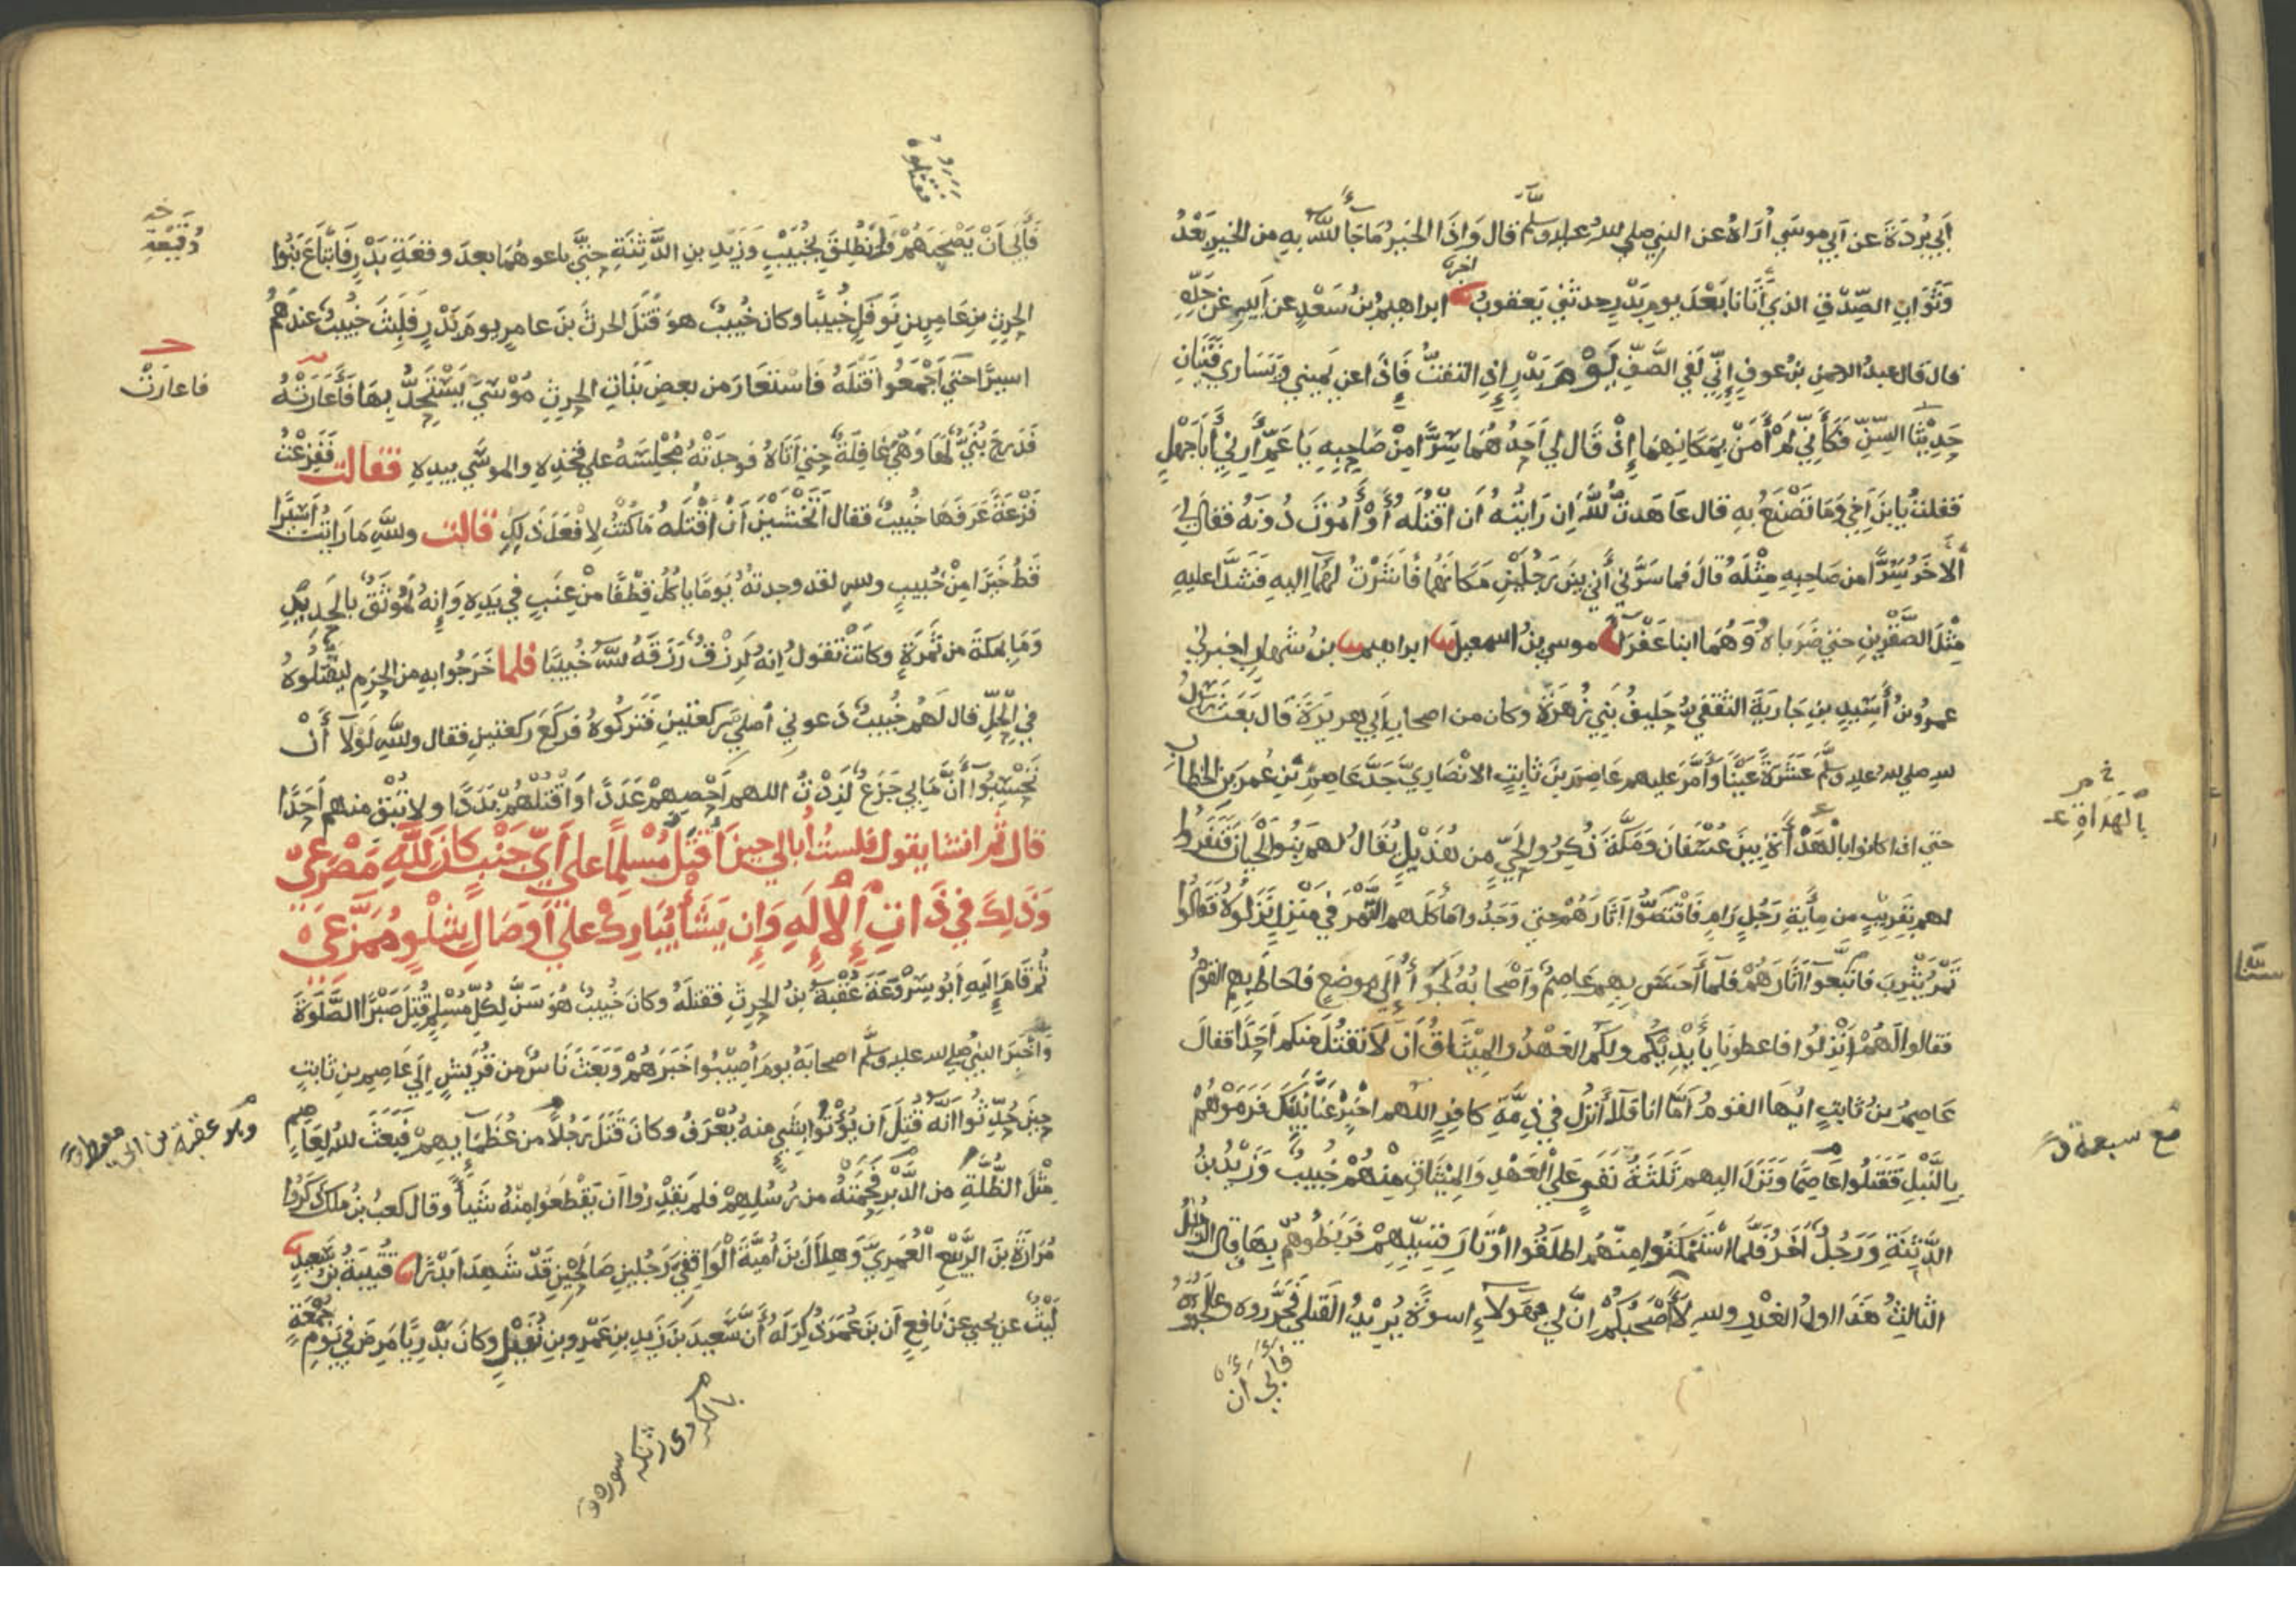 أبي بردة عن أبي موسى أراه عن النبي صلى الله عليه وسلم قال وإذا الخير ما جاء الله به من الخير بعد
وثواب الصدق الذي أتانا بعد يوم بدر حدثني يعقوب ابراهيم بن سعد عن أبيه عن جده
قال قال عبد الرحمن بن عوف إني لفي الصف يوم بدر إذ التفت فإذا عن يميني وعن يساري فتيان
حديثا السن فكأني لم أمن بمكانهما إذ قال لي أحدهما سرا من صاحبه يا عم أرني أبا جهل
فقلت يا بن أخي وما تصنع به قال عاهدت الله إن رايته أن أقتله أو أموت دونه فقال لي
الآخر سرا من صاحبه مثله قال فما سرني أني بين رجلين مكانهما فأشرت لهما إليه فشدا عليه
مثل الصقرين حتى ضرباه وهما ابنا عفراء موسى بن اسمعيل ابراهيم بن شهاب اخبرني
عمرو بن أسيد بن جارية الثقفي حليف بني زهرة وكان من اصحاب أبي هريرة قال بعث رسول
الله صلى الله عليه وسلم عشرة عينا وأمر عليهم عاصم بن ثابت الانصاري جد عاصم بن عمر بن الخطاب
حتى اذا كانوا بالهدأة بين عسفان ومكة ذكروا لحي من هذيل يقال لهم بنو لحيان فنفروا
لهم بقريب من مأية رجل رام فاقتصوا آثارهم حتى وجدوا مأكلهم التمر في منزل نزلوه فقالوا
تمر يثرب فاتبعوا آثارهم فلما أحس بهم عاصم وأصحابه لجؤا إلى موضع فاحاط بهم القوم
فقالوا لهم انزلوا فاعطونا بأيديكم ولكم العهد والميثاق أن لا نقتل منكم أحدا فقال
عاصم بن ثابت ايها القوم أما انا فلا أنزل في ذمة كافر اللهم اخبر عنا نبيك فرموهم
بالنبل فقتلوا عاصما ونزل اليهم ثلثة نفر على العهد والميثاق منهم خبيب وزيد بن
الدثنة ورجل آخر فلما استمكنوا منهم اطلقوا أوتار قسيهم فربطوهم بها قال الرجل
الثالث هذا اول الغدر والله لا أصحبكم ان لي بهؤلاء اسوة يريد القتلى فجرروه وعالجوه
فأبى أن
بالهداة
مع سبعة
فأبى أن يصحبهم فانطلق بخبيب وزيد بن الدثنة حتى باعوهما بعد وقعة بدر فابتاع بنوا
الحرث بن عامر بن نوفل خبيبا وكان خبيب هو قتل الحرث بن عامر يوم بدر فلبث خبيب عندهم
اسيرا حتى أجمعوا قتله فاستعار من بعض بنات الحرث موسى يستحد بها فأعارته
فدرج بني لها وهي غافلة حتى أتاه فوجدته مجلسه على فخذه والموسى بيده فقالت ففزعت
فزعة عرفها خبيب فقال أتخشين أن أقتله ما كنت لافعل ذلك قالت والله ما رايت أسيرا
قط خيرا من خبيب والله لقد وجدته يوما يأكل قطفا من عنب في يده وإنه لموثق بالحديد
وما بمكة من ثمرة وكانت تقول إنه لرزق رزقه الله خبيبا فلما خرجوا به من الحرم ليقتلوه
في الحل قال لهم خبيب دعوني أصلي ركعتين فتركوه فركع ركعتين فقال والله لولا أن
تحسبوا أن ما بي جزع لزدت اللهم أحصهم عددا واقتلهم بددا ولا تبق منهم أحدا
قال ثم انشا يقول فلست أبالي حين أقتل مسلما على أي جنب كان لله مصرعي
وذلك في ذات الإله وإن يشأ يبارك على أوصال شلو ممزع
ثم قام إليه أبو سروعة عقبة بن الحرث فقتله وكان خبيب هو سن لكل مسلم قتل صبرا الصلوة
وأخبر النبي صلى الله عليه وسلم اصحابه يوم أصيبوا خبرهم وبعث ناس من قريش إلى عاصم بن ثابت
حين حدثوا أنه قتل أن يؤتوا بشي منه يعرف وكان قتل رجلا من عظمايهم فبعث الله لعاصم
مثل الظلة من الدبر فحمته من رسلهم فلم يقدروا أن يقطعوا منه شيأ وقال كعب بن ملك ذكروا
مرارة بن الربيع العمري وهلال بن أمية الواقفي رجلين صالحين قد شهدا بدرا قتيبة بن سعيد
ليث عن يحيى عن نافع أن بن عمر ذكر له أن سعيد بن زيد بن عمرو بن نفيل وكان بدريا مرض في يوم جمعة
وقيعة
فاعارت
وهو عقبة بن ابي معيط